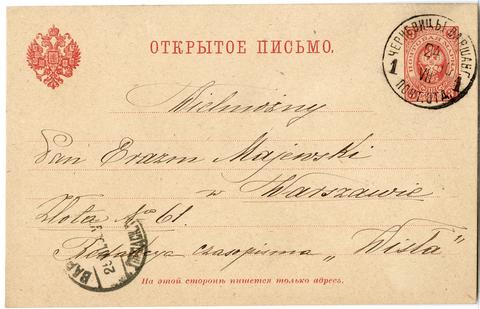 ОТКРЫТОЕ ПИСЬМО.
1 ПОЧТ. ОТД. 1
24
VII
Wielmożny
Pan Erazm Majewski
w Warszawie
Złota No 61.
Redakcya czasopisma „Wisła"
ВАР
На этой сторонѣ пишется только адресъ.